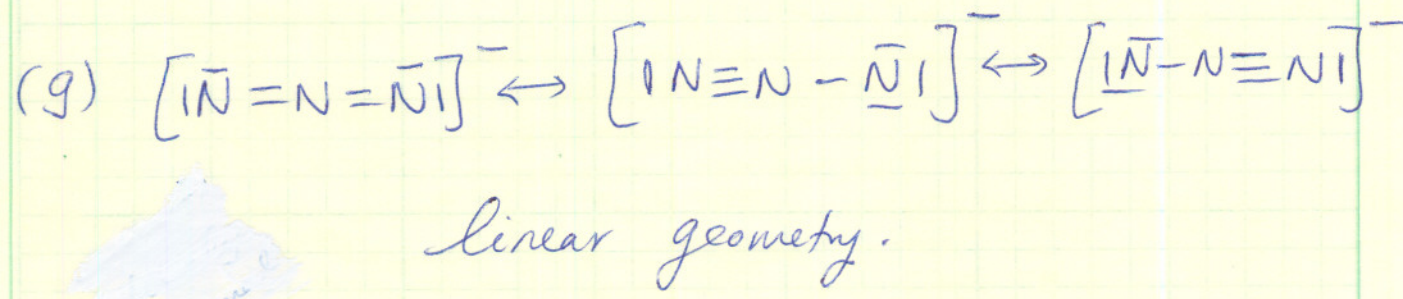 (g) [|N̄=N=N̄|]⁻ ↔ [|N≡N-N̲̄|]⁻ ↔ [|N̲̄-N≡N|]⁻
linear geometry.